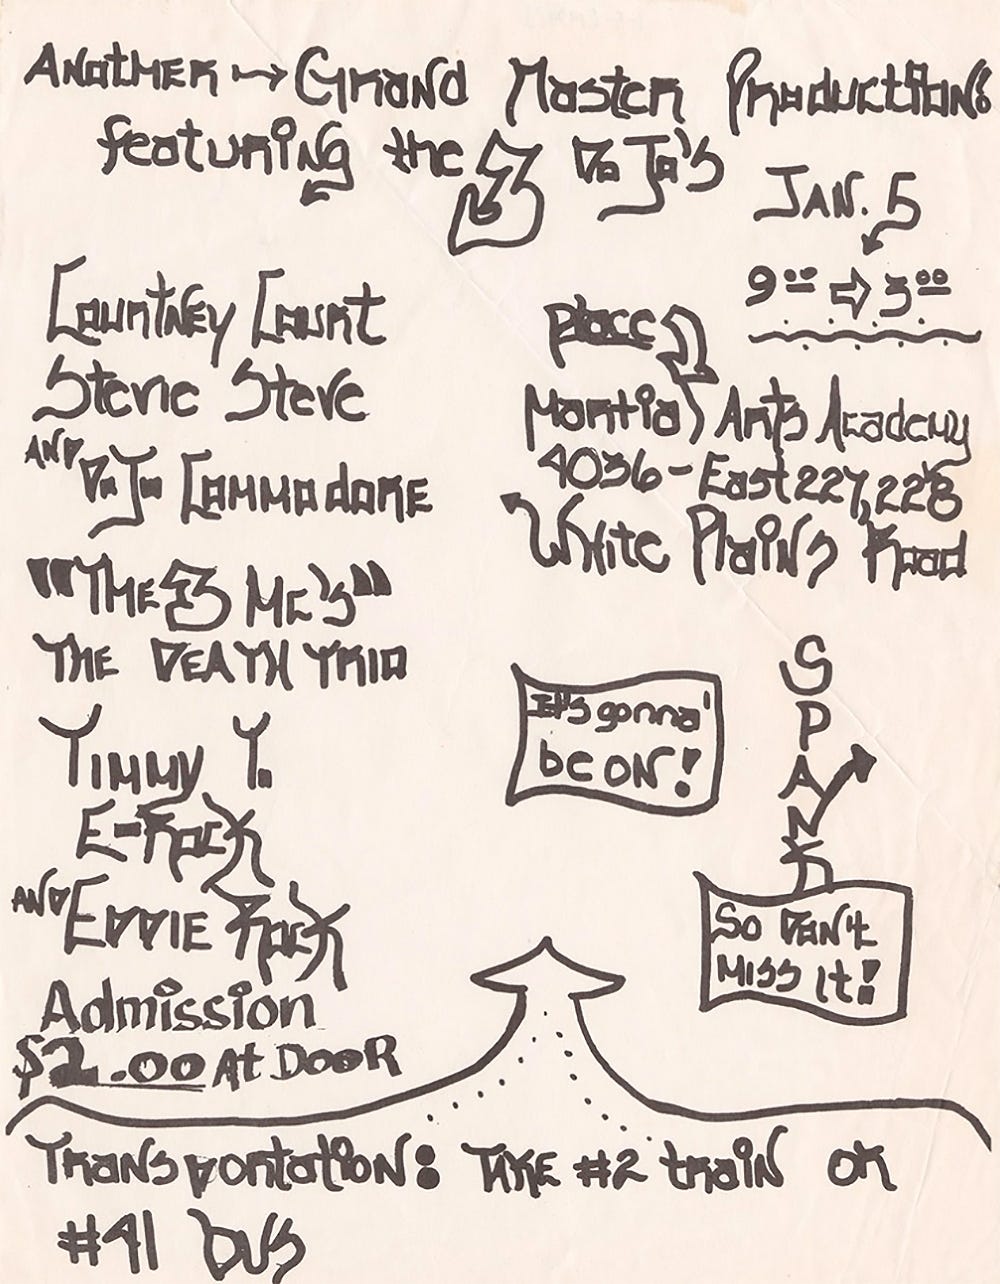 Another → Grand Master Productions
featuring the 3 D.J.'s
JAN. 5
9:00 ⇨ 3:00
Courtney Count
Stevie Steve
AND D.J. Commodore
"THE 3 MC's"
THE DEATH TRIO
Yimmy Y.
E-Rock
AND EDDIE Rock
Admission
$2.00 At DOOR
place
Martial Arts Academy
4036 - East 227, 228
White Plains Road
It's gonna'
be ON!
SPANK
So Don't
Miss it!
Transportation: TAKE #2 train or
#41 bus